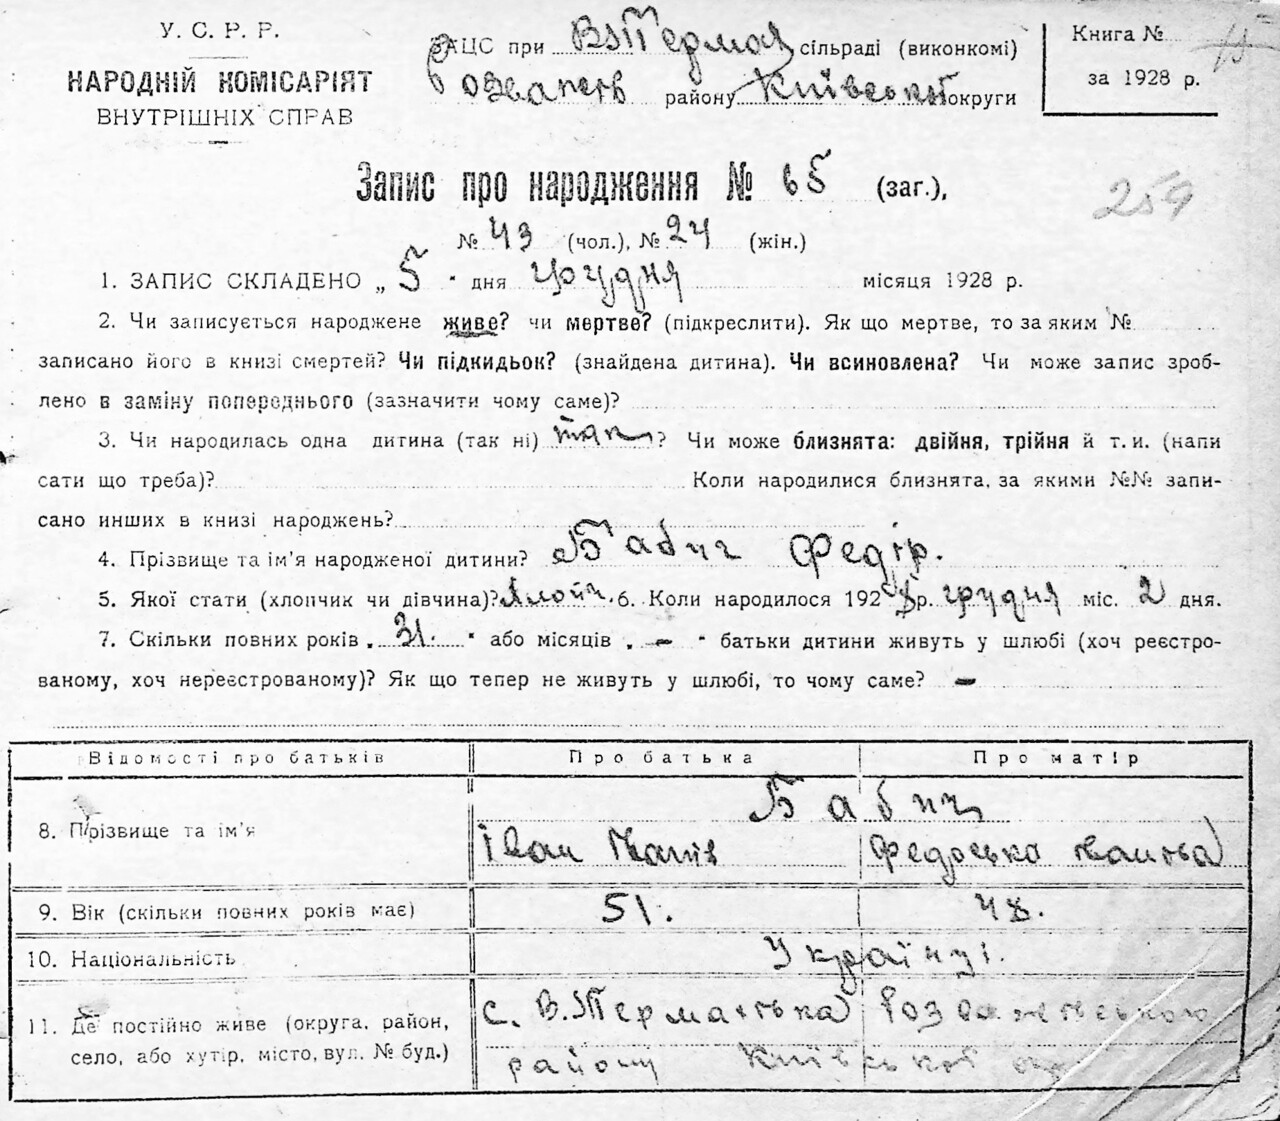 У. С. Р. Р.
НАРОДНІЙ КОМІСАРІЯТ
ВНУТРІШНІХ СПРАВ
ЗАЦС при сільраді (виконкомі)
району Київської округи
Книга №
за 1928 р.
Запис про народження № 65 (заг.),
259
№ 43 (чол.), № 24 (жін.)
1. ЗАПИС СКЛАДЕНО „ 5 " дня грудня місяця 1928 р.
2. Чи записується народжене живе? чи мертве? (підкреслити). Як що мертве, то за яким №
записано його в книзі смертей? Чи підкидьок? (знайдена дитина). Чи всиновлена? Чи може запис зроб-
лено в заміну попереднього (зазначити чому саме)?
3. Чи народилась одна дитина (так ні) так? Чи може близнята: двійня, трійня й т. и. (напи
сати що треба)? Коли народилися близнята, за якими №№ запи-
сано инших в книзі народжень?
4. Прізвище та ім'я народженої дитини? Бабич Федір.
5. Якої стати (хлопчик чи дівчина)? 6. Коли народилося 1928 р. грудня міс. 2 дня.
7. Скільки повних років „ 31. " або місяців „ — " батьки дитини живуть у шлюбі (хоч реєстро-
ваному, хоч нереєстрованому)? Як що тепер не живуть у шлюбі, то чому саме? —
Відомості про батьків Про батька Про матір
8. Прізвище та ім'я Бабич
Іван Федоська
9. Вік (скільки повних років має) 51. 48.
10. Національність Українці.
11. Де постійно живе (округа, район, с. В.
село, або хутір, місто, вул. № буд.) району Київської